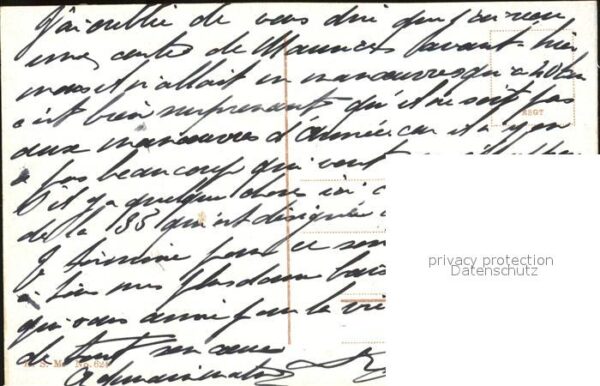 J'ai oublié de vous dire que j'ai reçu
une carte de Maurice avant hier
mais il n'allait en manœuvres qu'à 20 km
c'est bien surprenant qu'il ne soit pas
aux manœuvres d'Armée car il n'y en
a pas beaucoup qui vont
s'il y a quelque chose ici c
de la 135 qui est désignée
Je termine pour ce soir
à tous mes plus doux bais
qui vous aime pour la vie
de tout son cœur
REGT
S. M. No. 624
privacy protection
Datenschutz